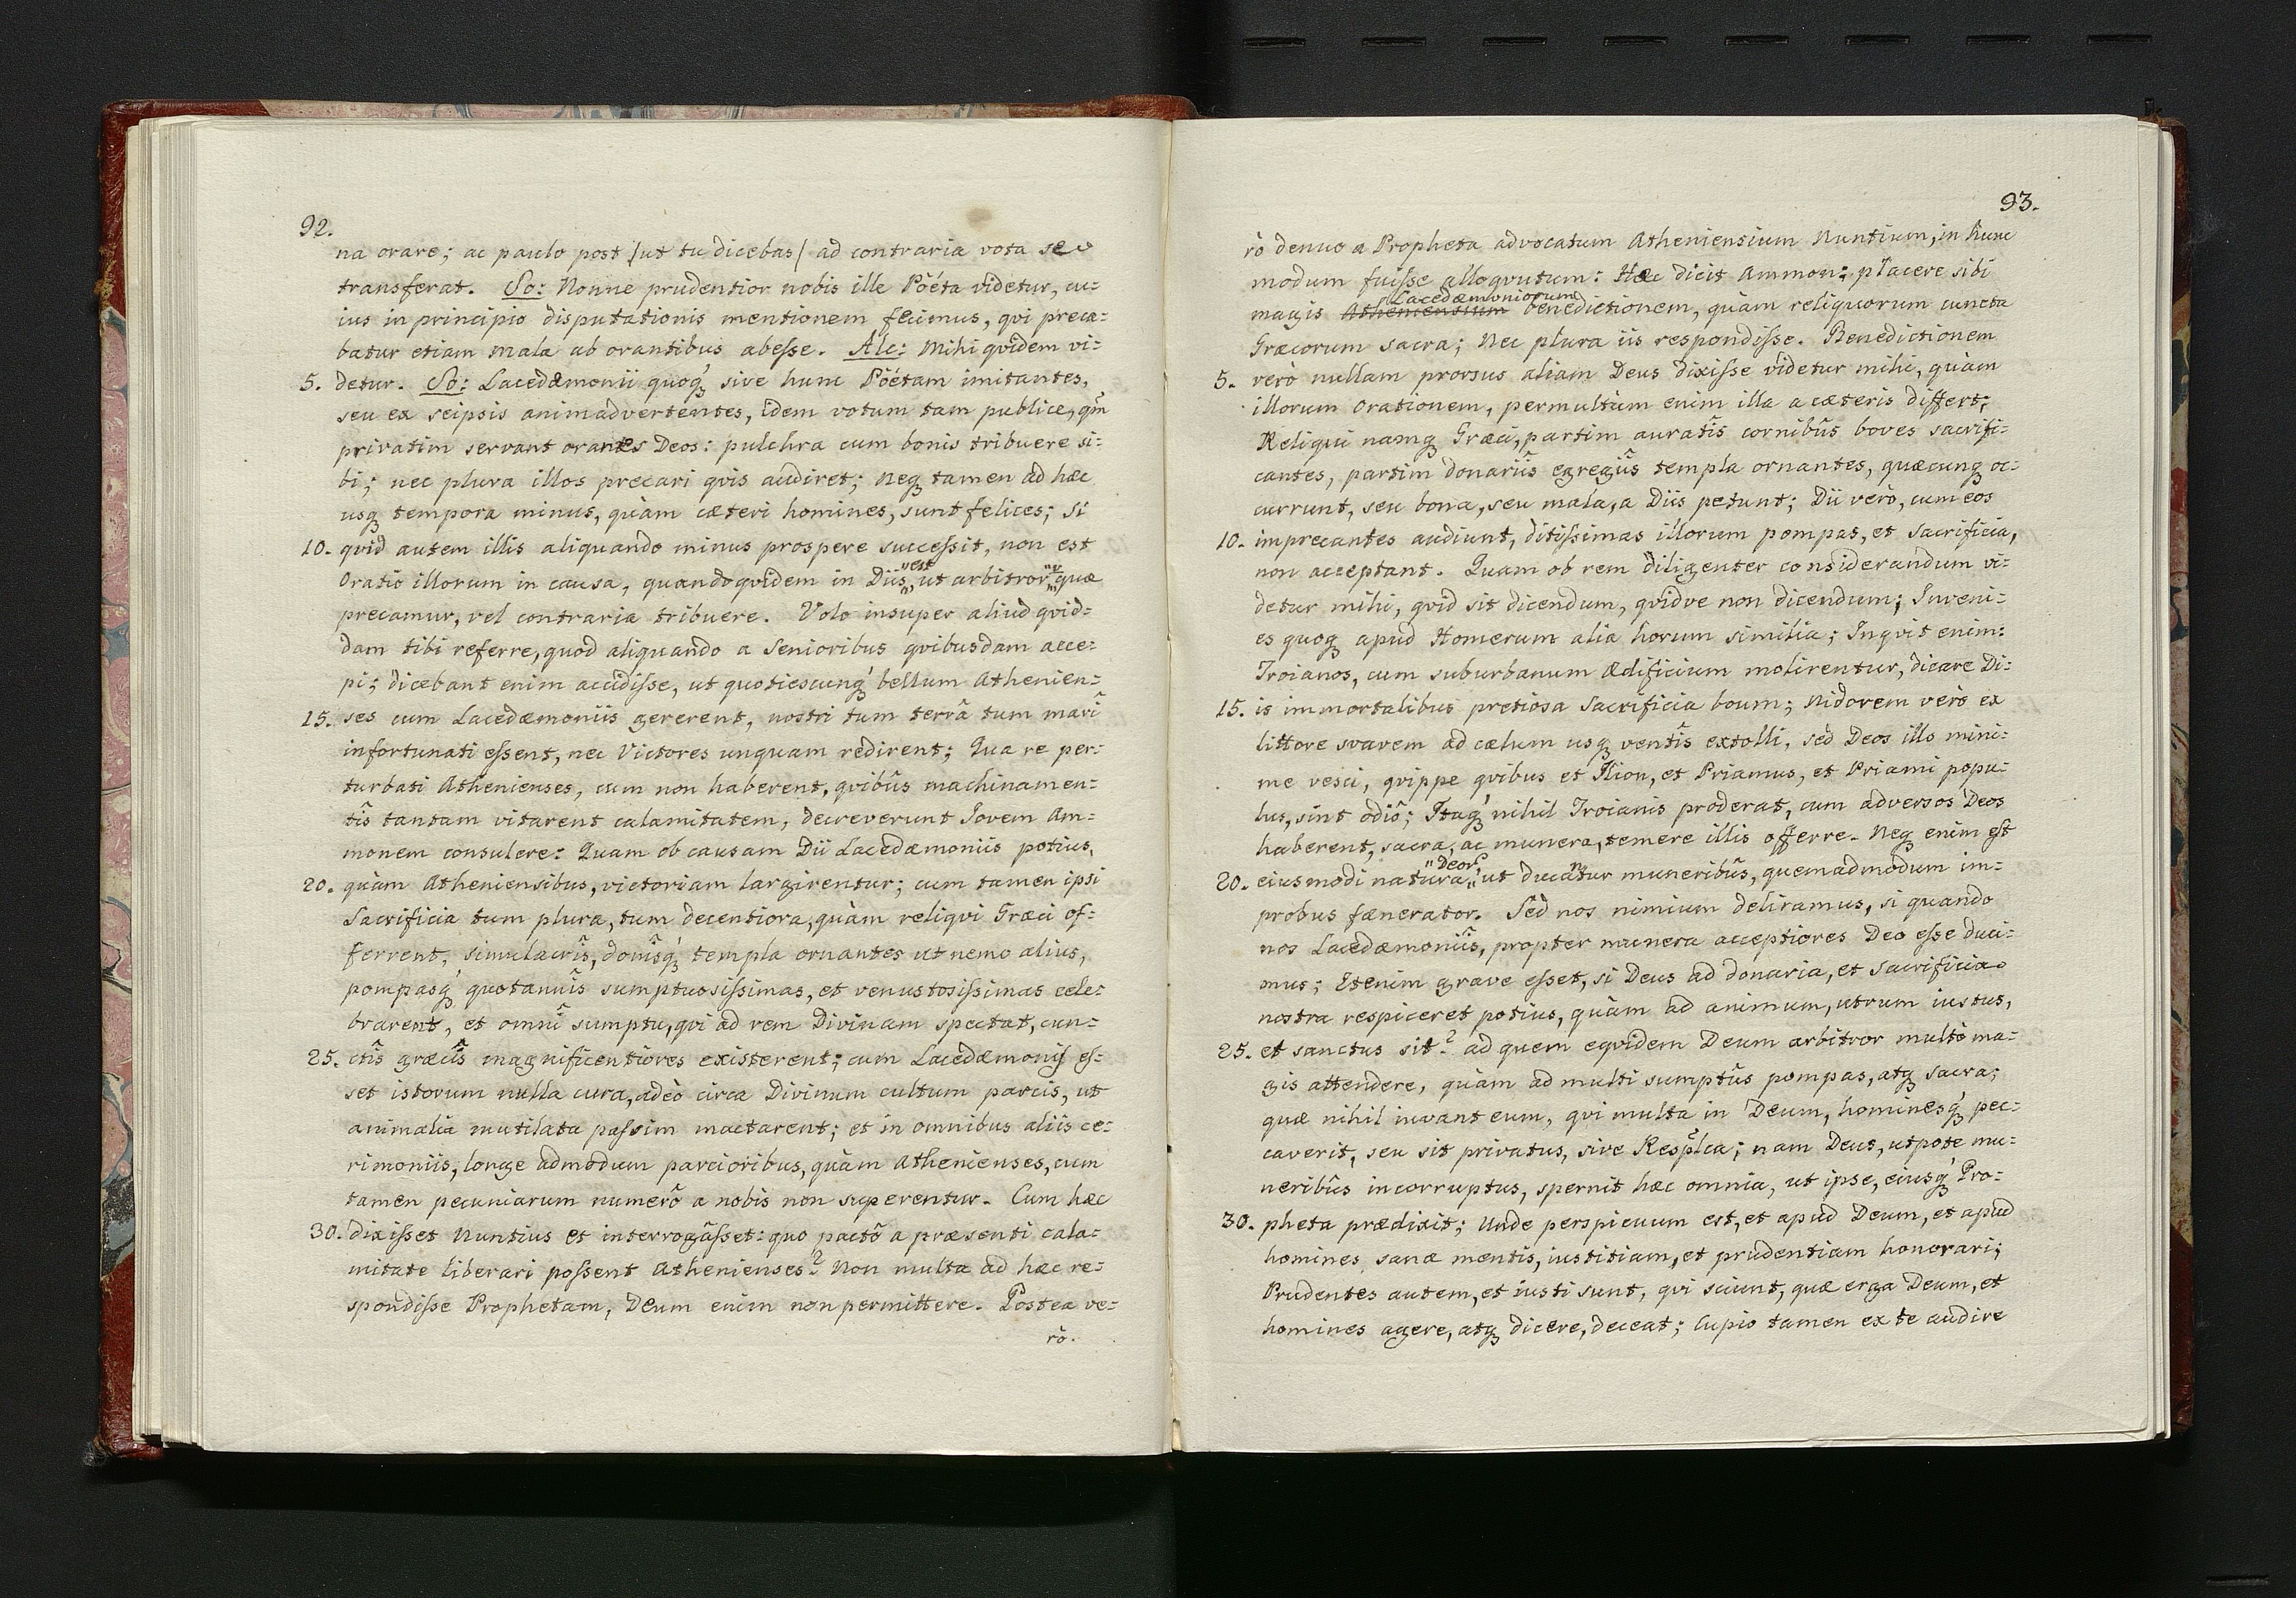 92.
na orare; ac paulo post /ut tu dicebas/ ad contraria vota se
transferat. So: Nonne prudentior nobis ille Poéta videtur, cu=
ius in principio disputationis mentionem fecimus, qvi preca=
batur etiam mala ab orantibus abesse. Alc: Mihi qvidem vi=
5. detur. So: Lacedæmonii quoq́ sive hunc Poétam imitantes,
seu ex seipsis animadvertentes, idem votum tam publice, qm̃
privatim servant orantes Deos: pulchra cum bonis tribuere si=
bi; nec plura illos precari qvis audiret; neq tamen ad hæc
usq tempora minus, quàm cæteri homines, sunt felices; si
10. qvid autem illis aliquando minus prospere successit, non est
Oratio illorum in causa, quandoqvidem in Diis "est" ut arbitror "v" quæ
precamur, vel contraria tribuere. Volo insuper aliud qvid=
dam tibi referre, quod aliquando a Senioribus qvibusdam acce=
pi; dicebant enim accidisse, ut quotiescunq́ bellum Athenien=
15. ses cum Lacedæmoniis gererent, nostri tum terrâ tum marî
infortunati essent, nec Victores unquam redirent; Qua re per=
turbati Athenienses, cum non haberent, qvibûs machinamen=
tîs tantam vitarent calamitatem, decreverunt Jovem Am=
monem consulere: Quam ob causam Dii Lacedæmoniis potius,
20. quàm Atheniensibus, victoriam largirentur; cum tamen ipsi
Sacrificia tum plura, tum decentiora, quàm reliqvi Græci of=
ferrent, simulacrîs, donîsq́ templa ornantes ut nemo alius,
pompasq́ quotannîs sumptuosissimas, et venustosissimas cele=
brarent, et omnî sumptu, qvi ad rem Divinam spectat, cun=
25. ctîs græcîs magnificentiores existerent; cum Lacedæmonijs es=
set istorum nulla cura, adeò circa Divinum cultum parcis, ut
animalia mutilata passim mactarent; et in omnibus aliis ce=
rimoniis, longe admodum parcioribus, quàm Athenienses, cum
tamen pecuniarum numerô a nobis non superentur. Cum hæc
30. dixisset Nuntius et interrogâsset: quo pactô a præsenti cala=
mitate liberari possent Athenienses? Non multa ad hæc re=
spondisse Prophetam, Deum enim non permittere. Postea ve=
rò.
93.
rò denuo a Propheta advocatum Atheniensium Nuntium, in hunc
modum fuisse alloqvutum: Hæc dicit Ammon: placere sibi
Lacedæmoniorum
magis Atheniensium benedictionem, quàm reliquorum cuncta
Græcorum sacra; Nec plura iis respondisse. Benedictionem
5. verò nullam prorsus aliam Deus dixisse videtur mihi, quàm
illorum Orationem, permultùm enim illa a cæteris differt;
Reliqui namq Græci, partim auratîs cornibûs boves sacrifi=
cantes, partim donariîs egregiîs templa ornantes, quæcunq oc=
currunt, seu bona, seu mala, a Diis petunt; Dii verò, cum eos
10. imprecantes audiunt, ditissimas illorum pompas, et Sacrificia,
non acceptant. Quam ob rem diligenter considerandum vi=
detur mihi, qvid sit dicendum, qvidve non dicendum; Inveni=
es quoq apud Homerum alia horum similia; Inqvit enim:
Troianos, cum suburbanum ædificium molirentur, dicare Di=
15. is immortalibus pretiosa Sacrificia boum; Nidorem verò ex
littore svavem ad cælum usq ventîs extolli, sed Deos illo mini=
me vesci, qvippe qvibus et Ilion, et Priamus, et Priami popu=
lus, sint odiô; Itaq́ nihil Troianis proderat, cum adversos Deos
haberent, sacra, ac munera, temere illis offerre. Neq enim est
20. eiusmodi natura "Deor̃" ut ducantur muneribûs, quemadmodum im=
probus fænerator. Sed nos nimium deliramus, si quando
nos Lacedæmoniîs, propter munera acceptiores Deo esse duci=
mus; Etenim grave esset, si Deus ad donaria, et Sacrificia
nostra respiceret potius, quàm ad animum, utrum iustus,
25. et sanctus sit? ad quem eqvidem Deum arbitror multò ma=
gis attendere, quàm ad multi sumptûs pompas, atq sacra;
quæ nihil iuvant eum, qvi multa in Deum, hominesq́ pec=
caverit, seu sit privatus, sive Resplca; nam Deus, utpote mu=
neribûs incorruptus, spernit hæc omnia, ut ipse, eiusq́ Pro=
30. pheta prædixit; Unde perspicuum est, et apud Deum, et apud
homines sanæ mentis, iustitiam, et prudentiam honorari;
Prudentes autem, et iusti sunt, qvi sciunt, quæ erga Deum, et
homines agere, atq dicere, deceat; Cupio tamen ex te audire